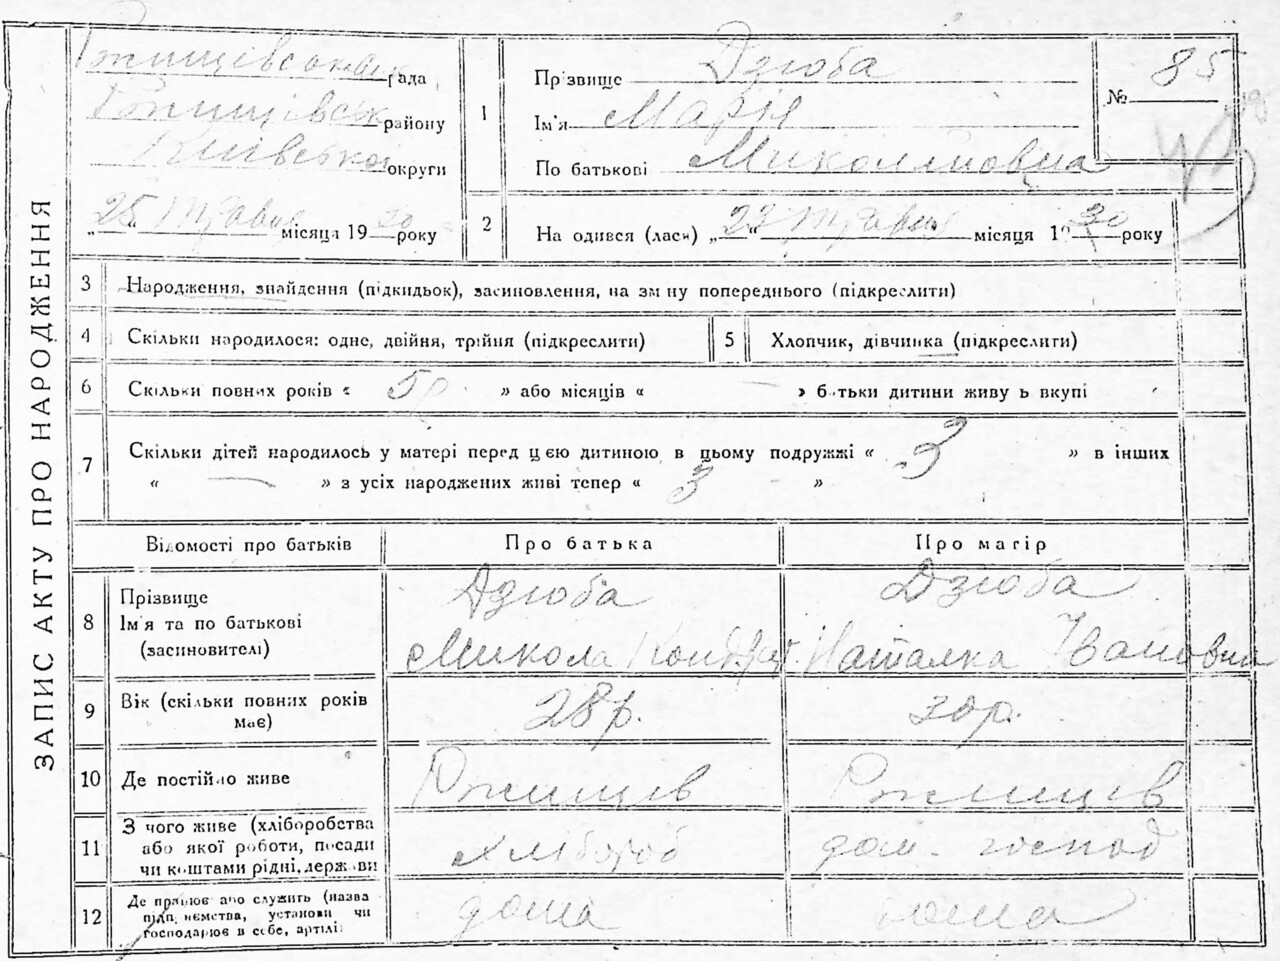 ЗАПИС АКТУ ПРО НАРОДЖЕННЯ
Ржищівська рада
Ржищівськ району
Київської округи
„25“ Травня місяця 1930 року
1
Прізвище Дзюба
Ім'я Марія
По батькові Миколаївна
№ 85
2
На одився (лась) „22“ Травня місяця 1930 року
3 Народження, знайдення (підкидьок), засиновлення, на зм ну попереднього (підкреслити)
4 Скільки народилося: одне, двійня, трійня (підкреслити)
5 Хлопчик, дівчинка (підкреслити)
6 Скільки повних років « 5р » або місяців « — » батьки дитини живу ь вкупі
7 Скільки дітей народилось у матері перед цією дитиною в цьому подружжі « 3 » в інших
« — » з усіх народжених живі тепер « 3 »
Відомості про батьків Про батька Про матір
8 Прізвище
Ім'я та по батькові
(засиновителі)
Дзюба
Микола Кондрат
Дзюба
Наталка Івановна
9 Вік (скільки повних років
має)
28р.
30р.
10 Де постійно живе Ржищев Ржищев
11 З чого живе (хліборобства
або якої роботи, посади
чи коштами рідні, держ ви
хлібороб
дом. господ
12 Де працює або служить (назва
підп. ємства, установи чи
господарює в себе, артілі)
дома
дома